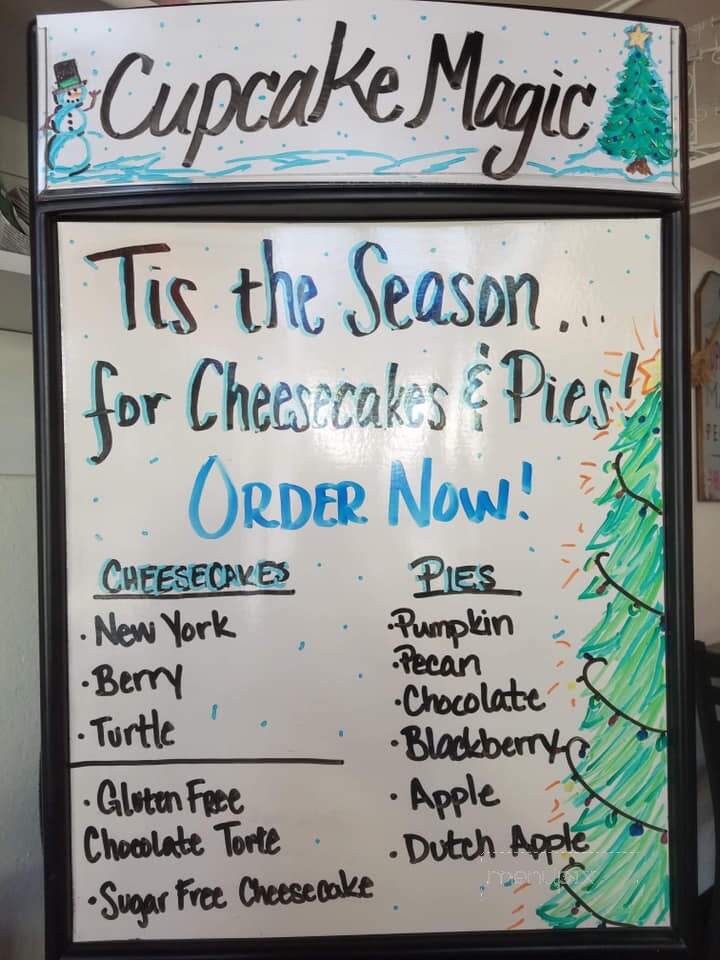 Cupcake Magic
Tis the Season...
for Cheesecakes & Pies!
ORDER NOW!
CHEESECAKES
· New York
· Berry
· Turtle
· Gluten Free
Chocolate Torte
· Sugar Free Cheesecake
PIES
· Pumpkin
· Pecan
· Chocolate
· Blackberry
· Apple
· Dutch Apple
menupix